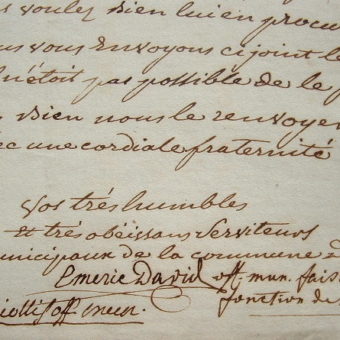 voulez bien lui en procu
vous Envoyons cijoint le
n'étoit pas possible de le p
Bien nous le renvoyer
une cordiale fraternité
vos trés humbles
Et trés obéissans Serviteurs
unicipaux de la commune d
Emeric David off. mun. fais
fonction de